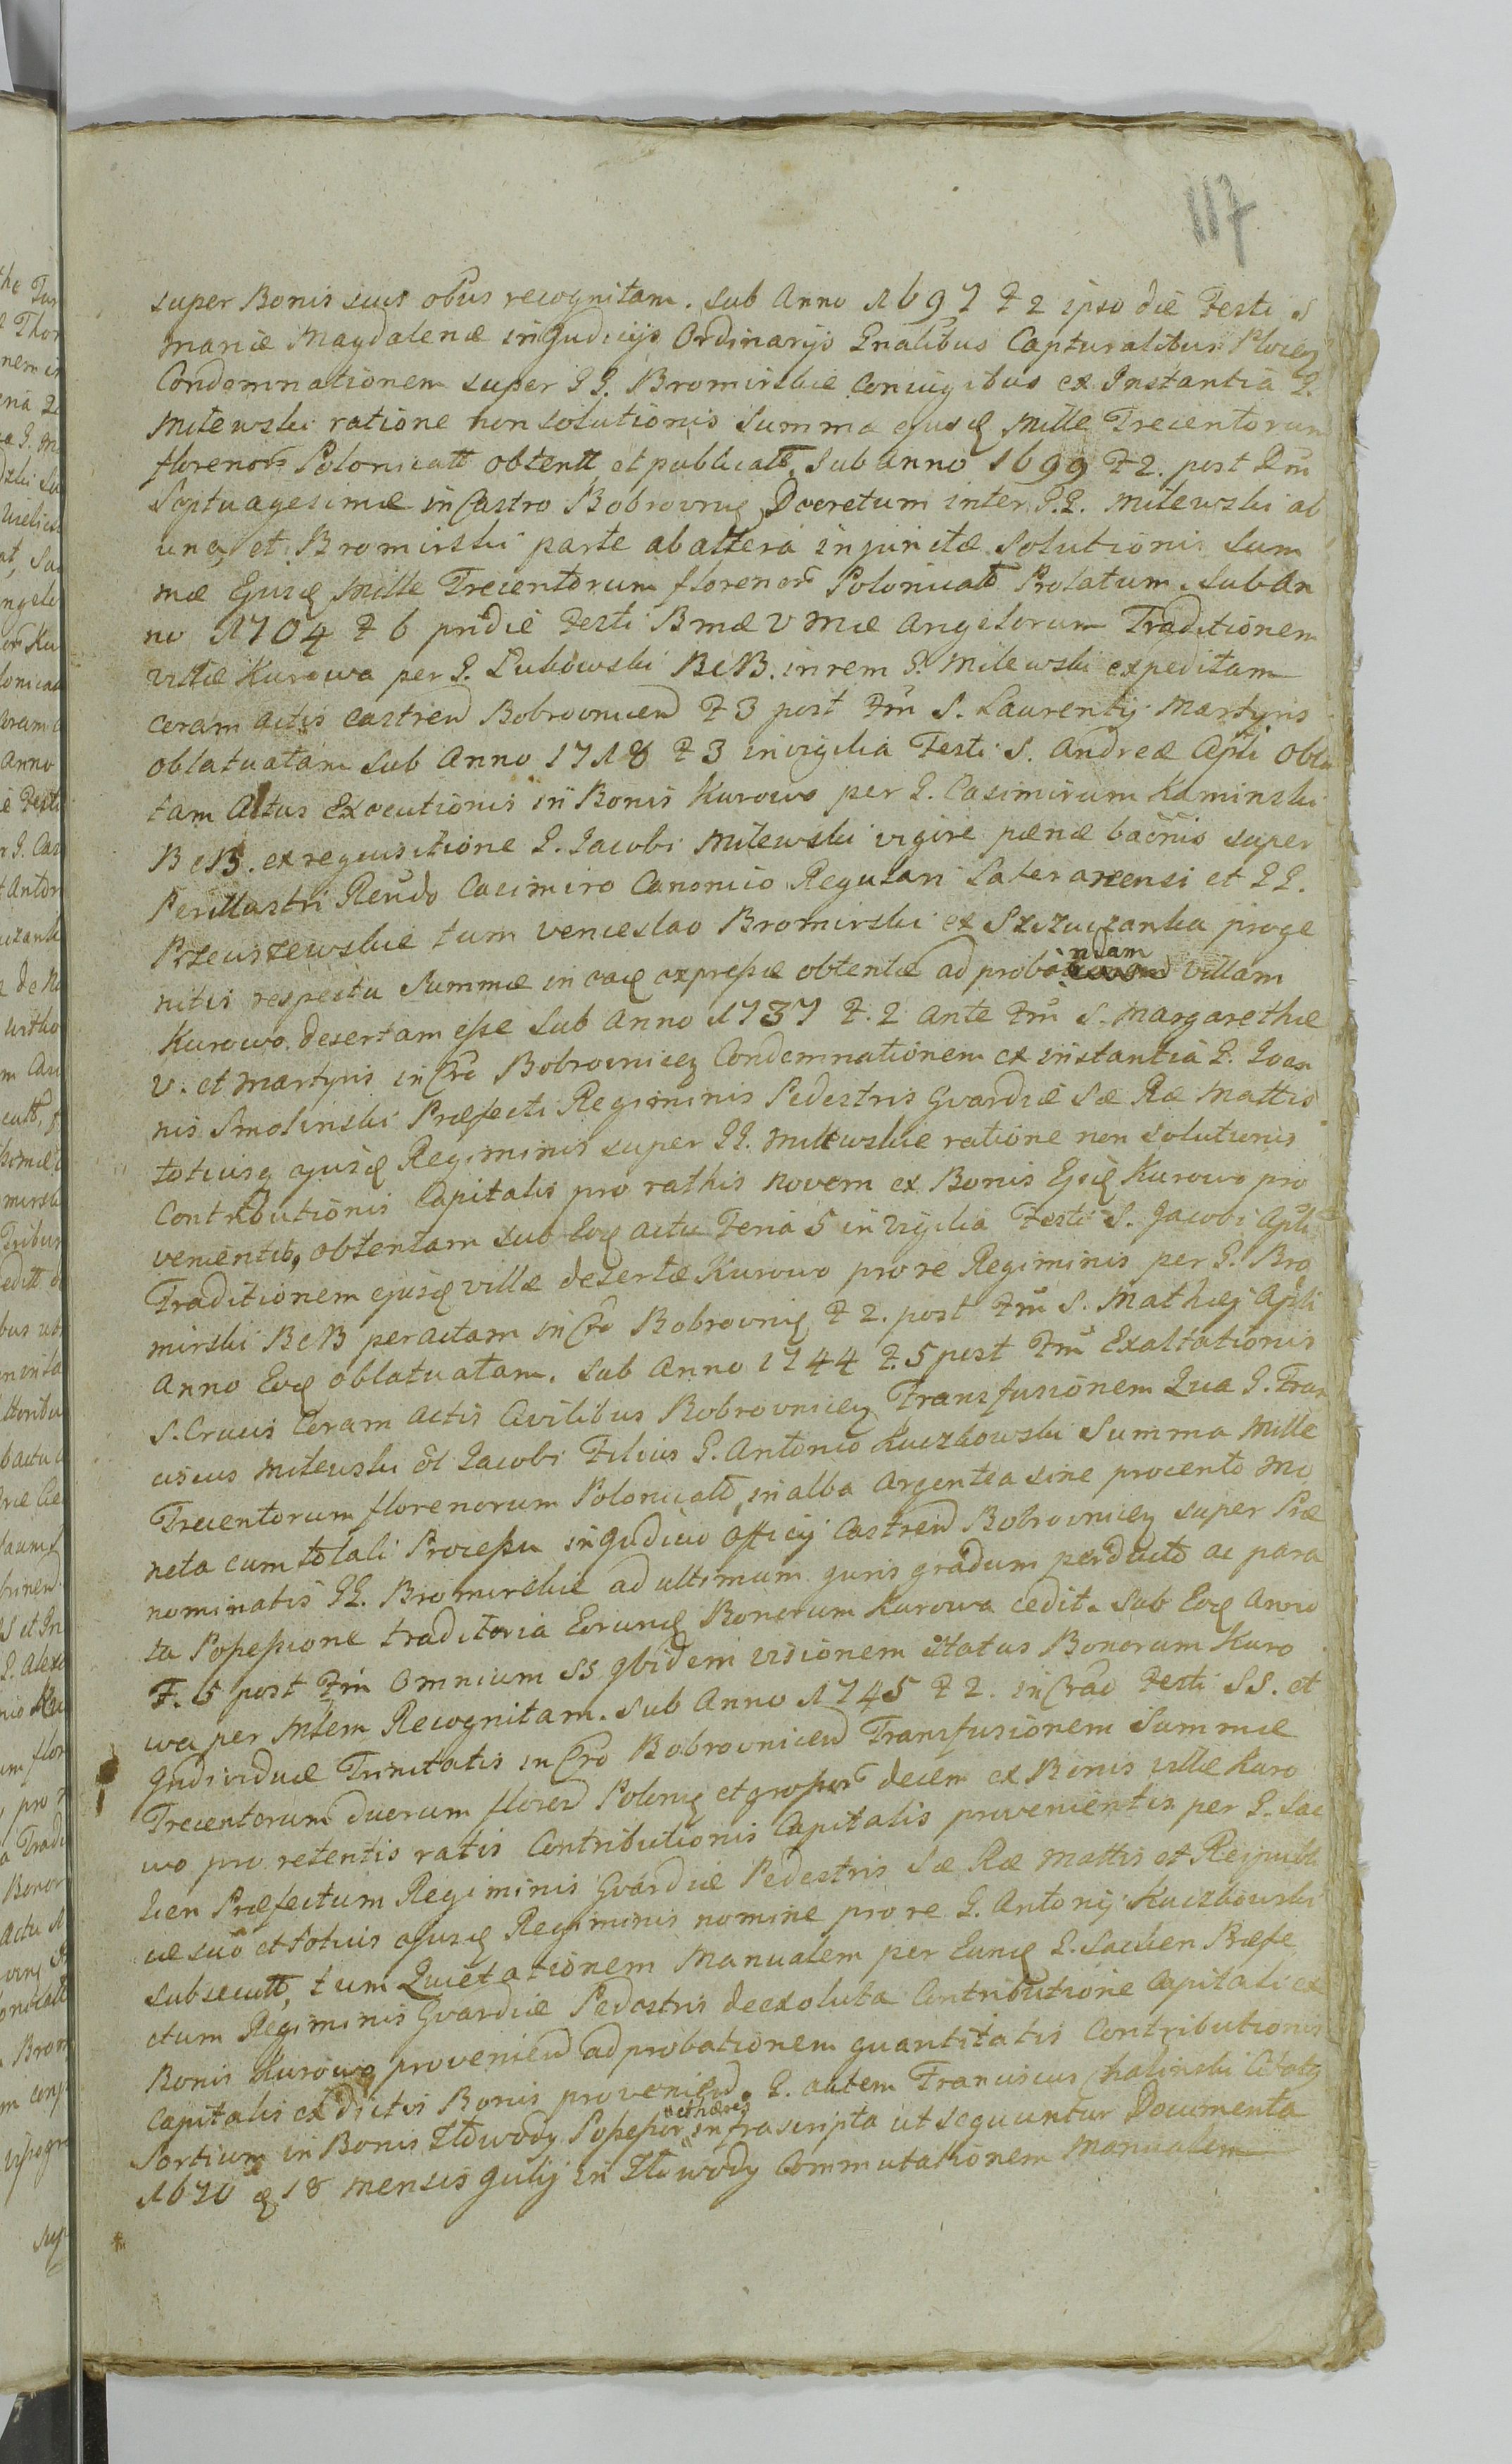 117
super Bonis suis obus recognitam. Sub Anno 1697 F 2 ipso die Festi S
Mariæ Magdalenæ in Judicijs Ordinarijs Gnalibus Capturalibus Plocen
Condemnationem super GG. Bromirskie Coniugibus ex Instantia G.
Milewski ratione non solutionis Summa ejusq Mille Trecentorum
florenor Polonicatt obtentt et publicatt, Sub Anno 1699 F 2. post Dm
Septuagesimæ in Castro Bobrovniq Decretum inter G.G. Milewski ab
una, et Bromirski parte ab altera injunctæ Solutionis Sum
mæ Ejusq Mille Trecentorum florenor Polonicatt Prolatum. Sub An
no 1704 F 6 pridie Festi Bmæ V Mæ Angelorum Traditionem
villæ Kurowa per G. Lukowski BcB. in rem G. Milewski expeditam
coram actis castren Bobrovnicen F 3 post Fm S. Laurentij Martyris
oblatuatam Sub Anno 1718 F 3 in vigilia Festi S. Andreæ Apli Obla
tam Actus Executionis in Bonis Kurowo per G. Casimirum Kaminski
BcB. ex requisitione G. Jacobi Milewski vigire pænæ bacnis super
Perillustri Rendo Casimiro Canonico Regulari Lateranensi et GG.
Pszeuszewskie tum Venceslao Bromirski ex Szczuczanka proge
nitis respectu Summæ in eaq expressæ obtentæ ad probandam villam
Kurowo desertam esse Sub Anno 1737 F. 2 ante Fm S. Margarethæ
V. et Martyris in Cro Bobrovnicen Condemnationem ex instantia G. Joan
nis Smolinski Præfecti Regiminis Pedestris Gvardiæ Sæ Ræ Mattis
totiusq ejusq Regiminis super GG. Milewskie ratione non solutionis
Contributionis Capitalis pro rathis novem ex Bonis Ejusq Kurowo pro
venientis, obtentam sub Eoq actu Feria 5 in Vigilia Festi S. Jacobi Apli
Traditionem ejusq villæ desertæ Kurowo pro re Regiminis per G. Bro
mirski BcB peractam in Cro Bobrovniq F 2. post Fm S. Mathæj Apli
Anno Eoq oblatuatam. Sub Anno 1744 F. 5 post Fm Exaltationis
S. Crucis Coram actis Civilibus Bobrovnicen Transfusionem Qua G. Fran
ciscus Milewski ol Jacobi Filius G. Antonio Kuczkowski Summa Mille
Trecentorum florenorum Polonicatt, in alba argentea sine procento Mo
neta cum totali Processu in Judicio Officij Castren Bobrovnicen super Præ
nominatis GG. Bromirskie ad ultimum juris gradum perducto ac para
ta Possessione traditoria Eorunq Bonorum Kurowa cedit. Sub Eoq Anno
F. 5 post Fm Omnium SS. ibidem visionem status Bonorum Kuro
wa per Mtem Recognitam. Sub Anno 1745 F 2. in Crao Festi SS. et
Individuæ Trinitatis in Cro Bobrovnicen Transfusionem Summæ
Trecentorum duorum floren Poloniq et grossor decem ex Bonis villæ Kuro
wo pro retentis ratis Contributionis Capitalis provenientis per G. Sac
ken Præfectum Regiminis Gvardiæ Pedestris Sæ Ræ Mattis et Reipubli
cæ suo et totius ejusq Regiminis nomine pro re G. Antonij Kuczkowski
subsecutt, tum Quietationem Manualem per Eunq G. Sacken Præfe
ctum Regiminis Gvardiæ Pedestris de exoluta Contributione Capitali ex
Bonis Kurowo provenien ad probationem quantitatis Contributionis
Capitalis ex dictis Bonis provenien. G. autem Franciscus Chalinski Citatq
Sortium in Bonis Złowody Possessor et hæres infrascripta ut sequuntur Documenta
1670 q 18 mensis Julij in Złowody Commutationem Manualem